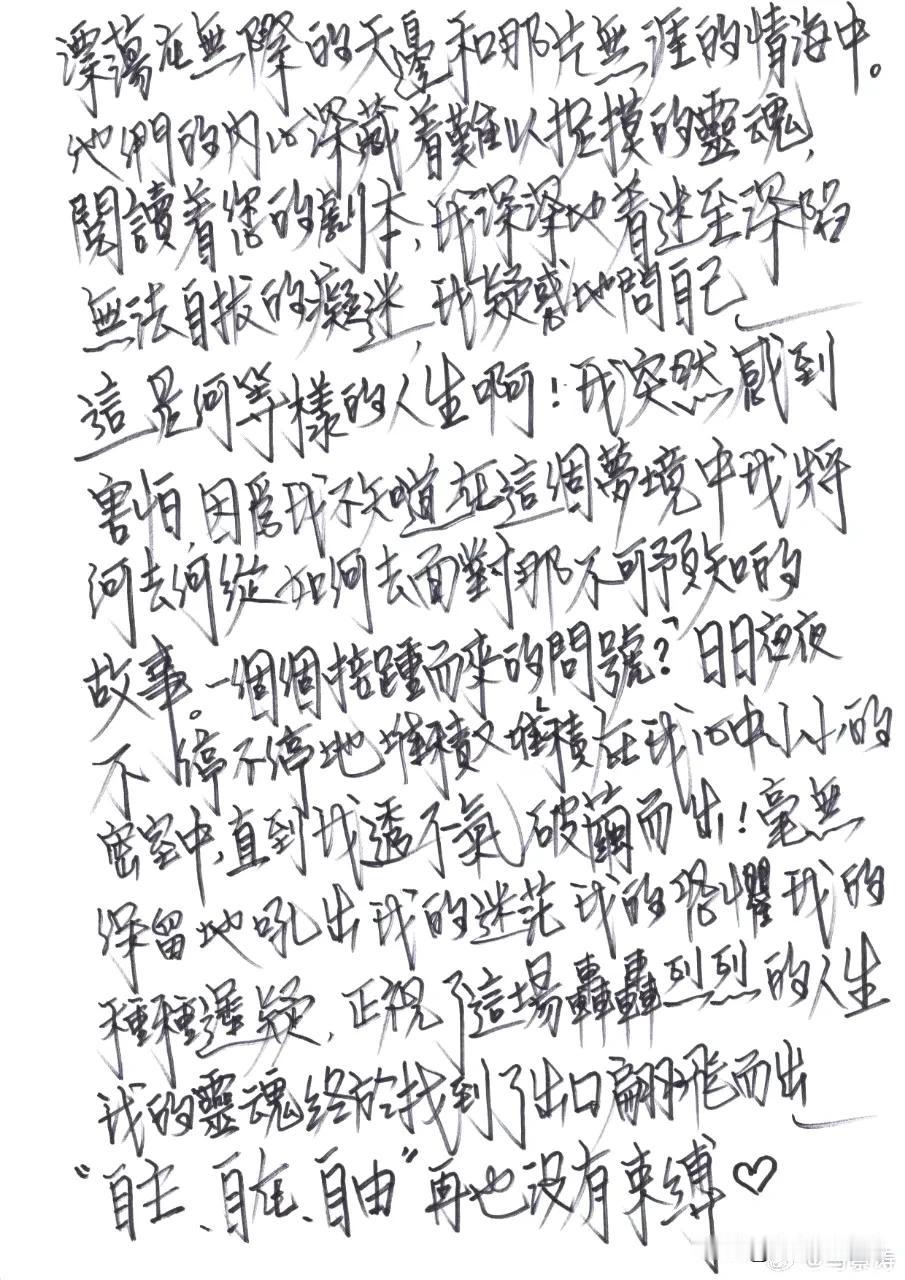 漂蕩在無際的天邊和那片無涯的情海中。
他們的内心深藏着難以捉摸的靈魂,
閱讀着您的劇本,我深深地着迷至深陷
無法自拔的癡迷,我疑惑地問自己
這是何等樣的人生啊!我突然感到
害怕,因爲我不知道在這個夢境中我將
何去何從如何去面對那不可預知的
故事。一個個接踵而來的問號?日日夜夜
不停不停地堆積又堆積在我心中小小的
密室中,直到我透不氣破繭而出!毫無
保留地吼出我的迷茫我的恐懼我的
種種遲疑,正視了這場轟轟烈烈的人生
我的靈魂終於找到了出口翩飛而出
“自主、自在、自由”再也没有束縛♡
@馬景涛